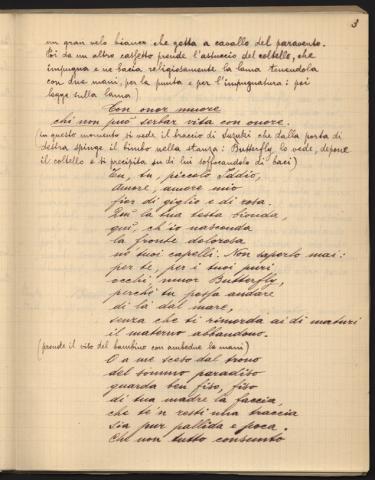 3
un gran velo bianco che getta a cavallo del paravento.
Poi da un altro cassetto prende l'astuccio del coltello, che
impugna e ne bacia religiosamente la lama tenendola
con due mani, per la punta e per l'impugnatura: poi
legge sulla lama)
Con onor muore
chi non può serbar vita con onore.
(in questo momento si vede il braccio di Suzuki che dalla porta di
destra spinge il bimbo nella stanza: Butterfly lo vede, depone
il coltello e si precipita su di lui soffocandolo di baci)
Tu, tu, piccolo Iddio,
Amore, amore mio
fior di giglio e di rosa.
Qui la tua testa bionda,
qui, ch'io nasconda
la fronte dolorosa
ni tuoi capelli. Non saperlo mai:
per te, per i tuoi puri
occhi, muor Butterfly,
perché tu possa andare
di là dal mare,
senza che ti rimorda ai dì maturi
il materno abbandono.
(prende il viso del bambino con ambedue le mani)
O a me sceso dal trono
del sommo paradiso
guarda ben fiso, fiso
di tua madre la faccia,
che te'n resti una traccia
sia pur pallida e poca.
Chè non tutto consunto